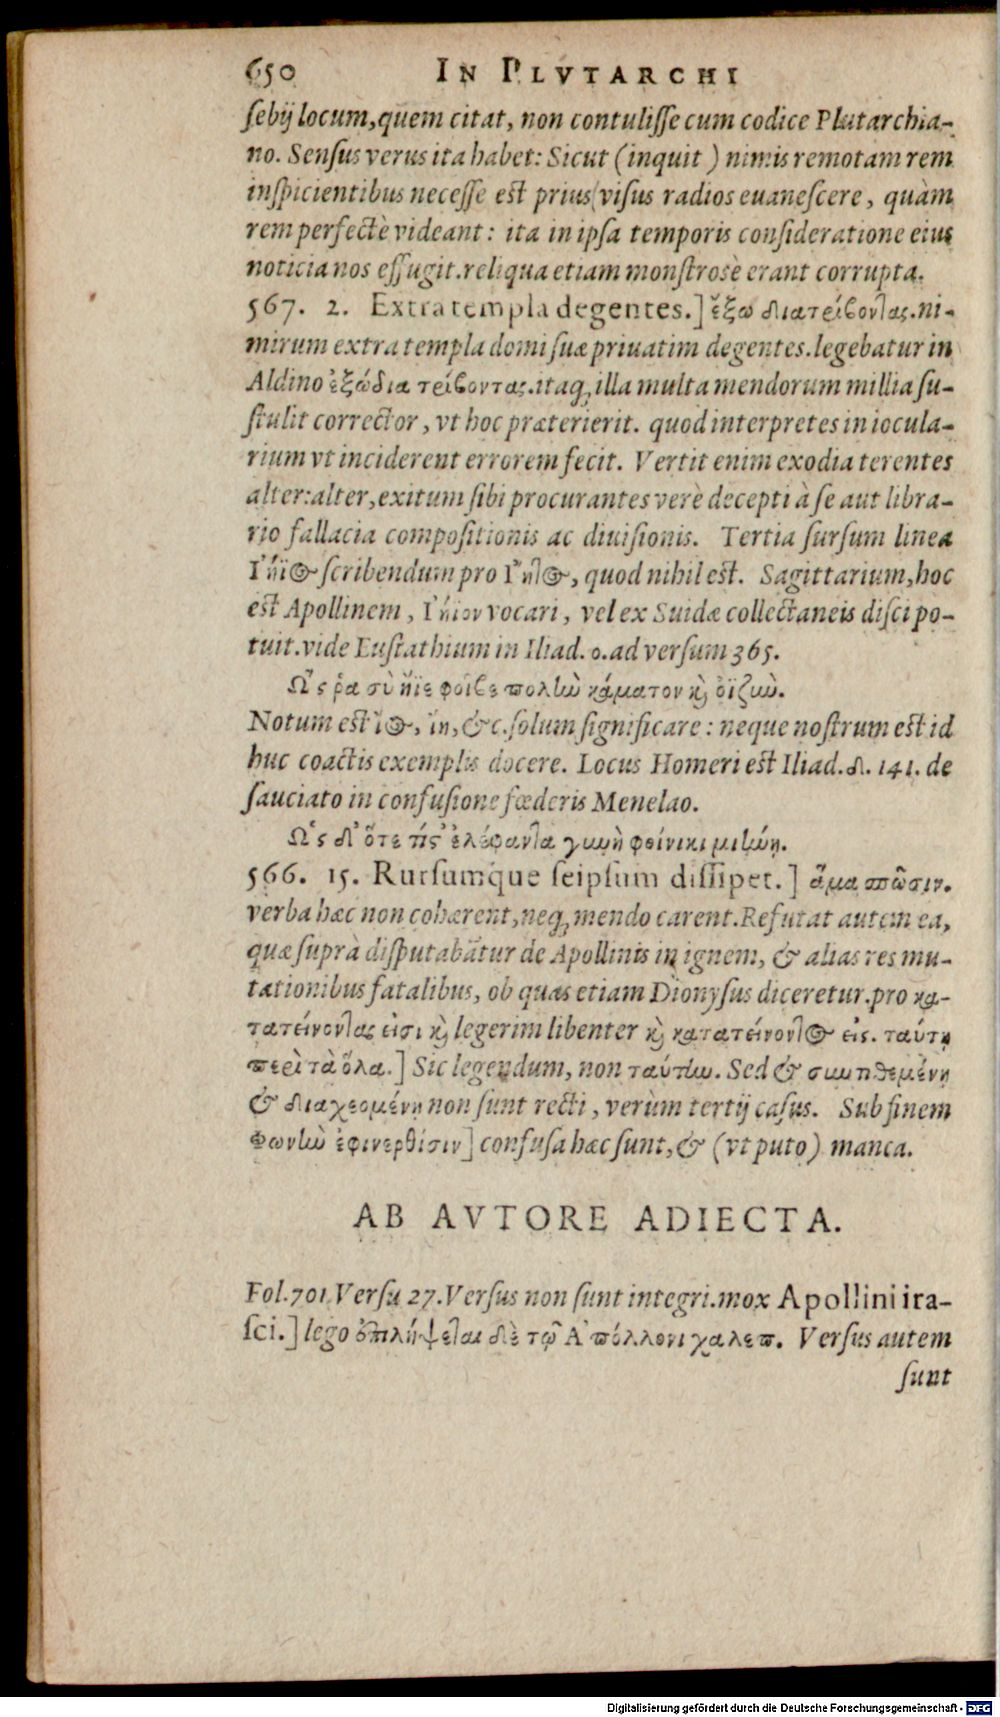 650 IN PLVTARCHI
sebij locum, quem citat, non contulisse cum codice Plutarchia-
no. Sensus verus ita habet: Sicut (inquit) nimis remotam rem
inspicientibus necesse est prius visus radios euanescere, quàm
rem perfectè videant: ita in ipsa temporis consideratione eius
noticia nos effugit. reliqua etiam monstrosè erant corrupta.
567. 2. Extra templa degentes.] ἔξω διατρίβοντας. ni-
mirum extra templa domi suæ priuatim degentes. legebatur in
Aldino ἐξώδια τρίβοντας. itaq; illa multa mendorum millia su-
stulit corrector, vt hoc præterierit. quod interpretes in iocula-
rium vt inciderent errorem fecit. Vertit enim exodia terentes
alter: alter, exitum sibi procurantes verè decepti à se aut libra-
rio fallacia compositionis ac diuisionis. Tertia sursum linea
Γήϊος scribendum pro Γητος, quod nihil est. Sagittarium, hoc
est Apollinem, Γήϊον vocari, vel ex Suidæ collectaneis disci po-
tuit. vide Eustathium in Iliad. ο. ad versum 365.
Ὥς ῥα σὺ ἤϊε φοῖβε πολὺν κάματον καὶ ὀϊζυὺ.
Notum est ἴος, ἴη, &c. solum significare: neque nostrum est id
huc coactis exemplis docere. Locus Homeri est Iliad. δ. 141. de
sauciato in confusione fœderis Menelao.
Ὡς δ' ὅτε τίς ἐλέφαντα γυνὴ φοίνικι μιήνῃ.
566. 15. Rursumque seipsum dissipet.] ἅμα σπῶσιν.
verba hæc non cohærent, neq; mendo carent. Refutat autem ea,
quæ suprà disputabātur de Apollinis in ignem, & alias res mu-
tationibus fatalibus, ob quas etiam Dionysus diceretur. pro κα-
τατείνοντας εἰσι καὶ legerim libenter καὶ κατατείνοντος εἰς. ταύτῃ
περὶ τὰ ὅλα.] Sic legendum, non ταύτην. Sed & συντιθεμένη
& διαχεομένη non sunt recti, verùm tertij casus. Sub finem
Φωντὺ ἐφινερθίσιν] confusa hæc sunt, & (vt puto) manca.
AB AVTORE ADIECTA.
Fol. 701 Versu 27. Versus non sunt integri. mox Apollini ira-
sci.] lego ἐπιλήψεται δὲ τῷ Ἀπόλλονι χαλεπ. Versus autem
sunt
Digitalisierung gefördert durch die Deutsche Forschungsgemeinschaft - DFG